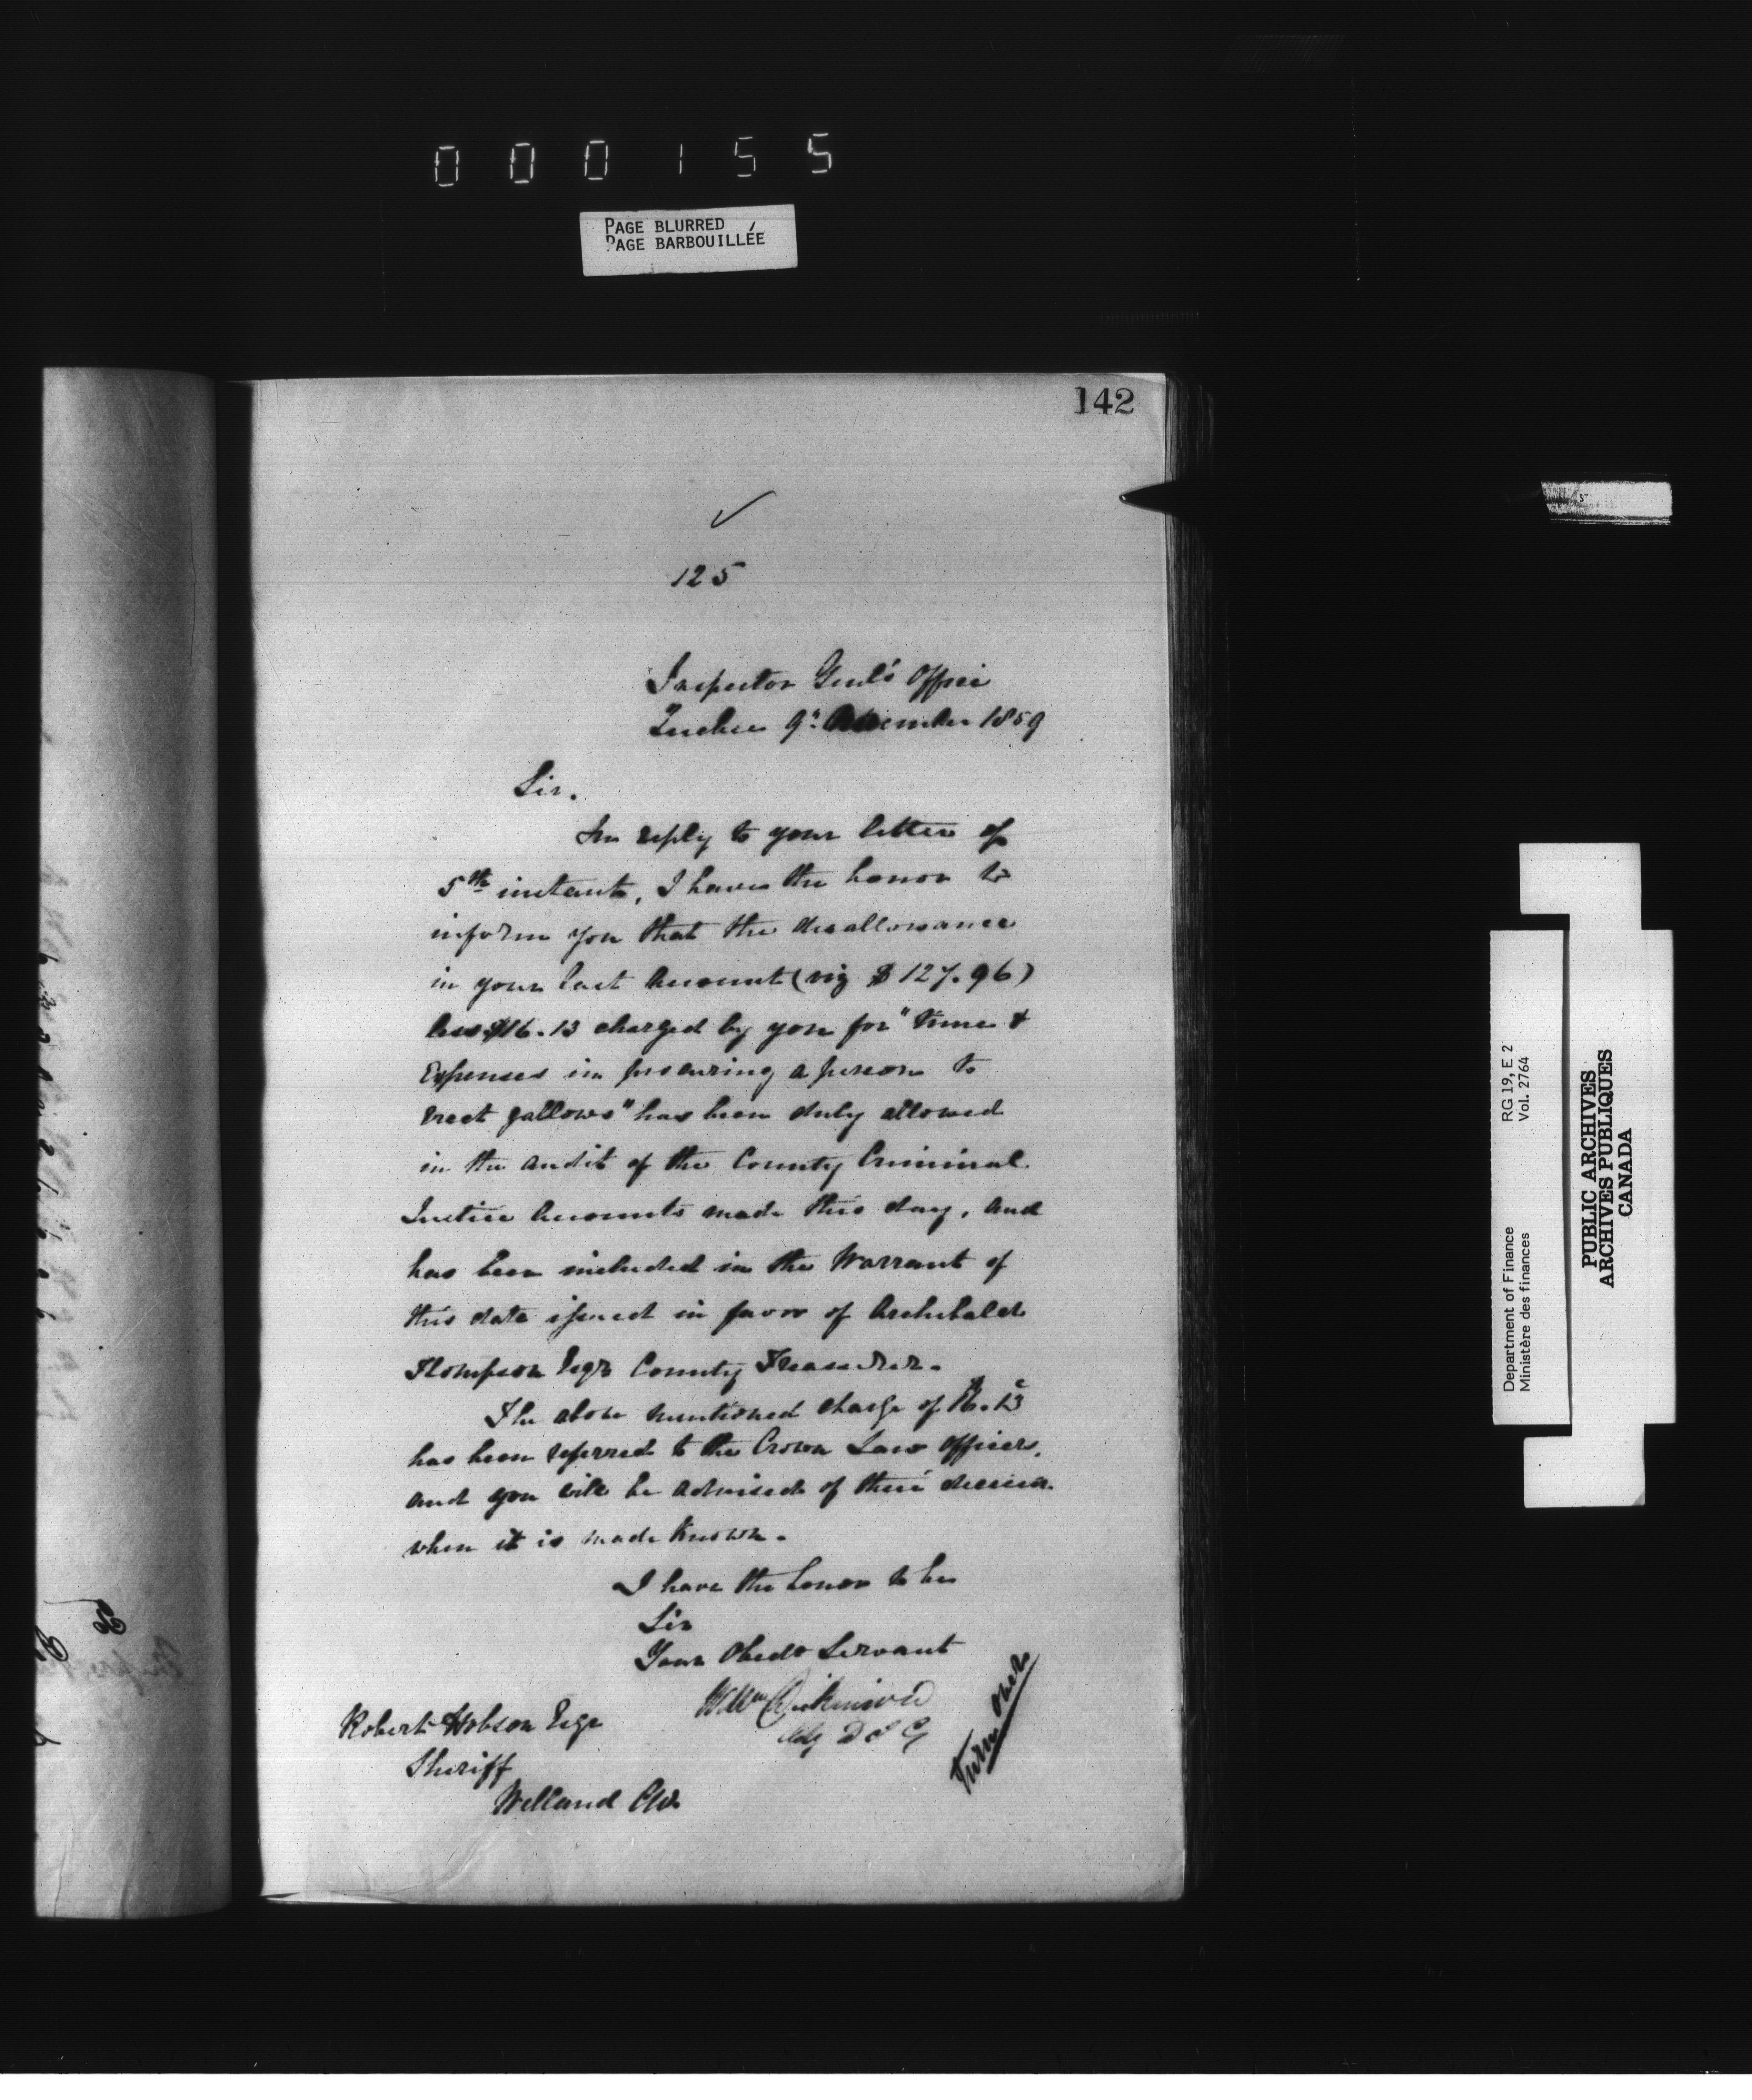 000155
PAGE BLURRED
PAGE BARBOUILLÉE
142
125
Inspector Genl's Office
Quebec 9th December 1859
Sir.
In reply to your letter of
5th instant, I have the honor to
inform you that the disallowance
in your last Account (viz $127.96)
less $16.13 charged by you for "time &
Expenses in procuring a person to
erect gallows" has been duly allowed
in the audit of the County Criminal
Justice Accounts made this day, and
has been included in the Warrant of
this date issued in favor of Archibald
Thompson Esqr County Treasurer.
The above mentioned charge of $16.13
has been referred to the Crown Law Officers,
and you will be advised of their decision
when it is made known.
I have the honor to be
Sir
Your Obedt Servant
Wm Dickinson
Actg D I G
Turn over
Robert Hobson Esqr
Sheriff
Welland CW.
Department of Finance
Ministère des finances
RG 19, E 2
Vol. 2764
PUBLIC ARCHIVES
ARCHIVES PUBLIQUES
CANADA